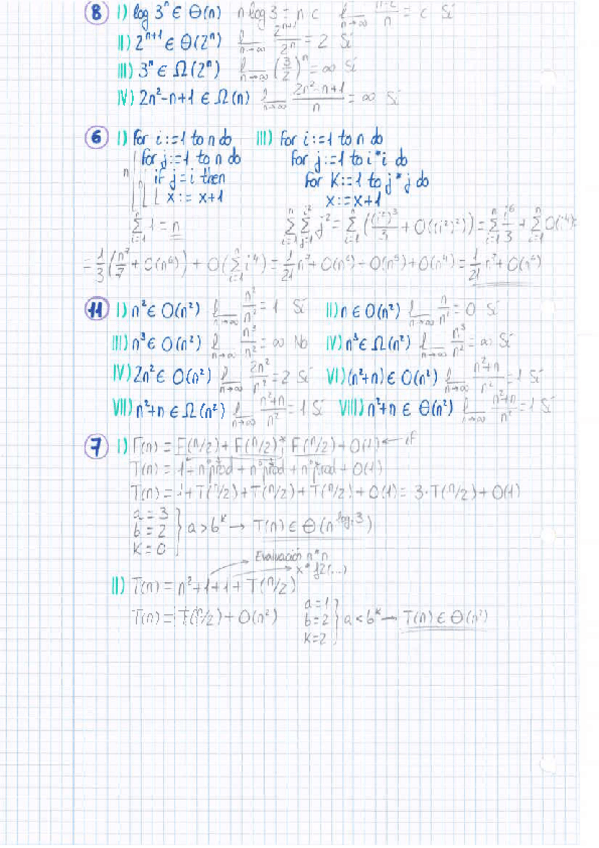 8 I) log 3ⁿ ∈ Θ(n) n·log 3 = n·c lím n→∞ n·c/n = c Sí
II) 2ⁿ⁺¹ ∈ Θ(2ⁿ) lím n→∞ 2ⁿ⁺¹/2ⁿ = 2 Sí
III) 3ⁿ ∈ Ω(2ⁿ) lím n→∞ (3/2)ⁿ = ∞ Sí
IV) 2n²-n+1 ∈ Ω(n) lím n→∞ 2n²-n+1/n = ∞ Sí
6 I) for i:=1 to n do III) for i:=1 to n do
for j:=1 to n do for j:=1 to i*i do
n if j=i then for K:=1 to j*j do
x:=x+1 x:=x+1
Σ i=1 n 1 = n Σ i=1 n Σ j=1 i² j² = Σ i=1 n ((i²)³/3 + O((i²)²)) = Σ i=1 n i⁶/3 + Σ i=1 n O(i⁴) =
= 1/3 (n⁷/7 + O(n⁶)) + O(Σ i=1 n i⁴) = 1/21 n⁷ + O(n⁶) + O(n⁵) + O(n⁴) = 1/21 n⁷ + O(n⁶)
11 I) n² ∈ O(n²) lím n→∞ n²/n² = 1 Sí II) n ∈ O(n²) lím n→∞ n/n² = 0 Sí
III) n³ ∈ O(n²) lím n→∞ n³/n² = ∞ No IV) n³ ∈ Ω(n²) lím n→∞ n³/n² = ∞ Sí
IV) 2n² ∈ O(n²) lím n→∞ 2n²/n² = 2 Sí VI) (n²+n) ∈ O(n²) lím n→∞ n²+n/n² = 1 Sí
VII) n²+n ∈ Ω(n²) lím n→∞ n²+n/n² = 1 Sí VIII) n²+n ∈ Θ(n²) lím n→∞ n²+n/n² = 1 Sí
7 I) T(n) = F(n/2) + F(n/2) * F(n/2) + O(1) ← if
T(n) = 1 + nº prod + nº prod + nº prod + O(1)
T(n) = 1 + T(n/2) + T(n/2) + T(n/2) + O(1) = 3·T(n/2) + O(1)
a = 3
b = 2 } a > bᴷ → T(n) ∈ Θ(n^log₂3)
K = 0
Evaluación n*n
x*f2(...)
II) T(n) = n² + 1 + 1 + T(n/2)
T(n) = T(n/2) + O(n²) a = 1
b = 2 } a < bᴷ → T(n) ∈ Θ(n²)
K = 2